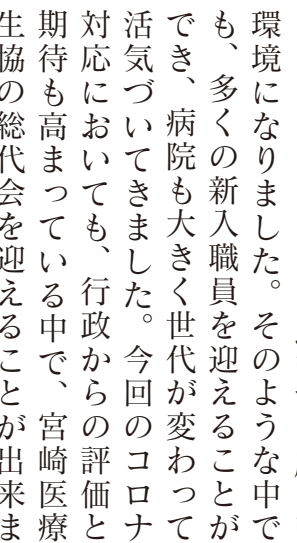 環境になりました。そのような中で
も、多くの新入職員を迎えることが
でき、病院も大きく世代が変わって
活気づいてきました。今回のコロナ
対応においても、行政からの評価と
期待も高まっている中で、宮崎医療
生協の総代会を迎えることが出来ま